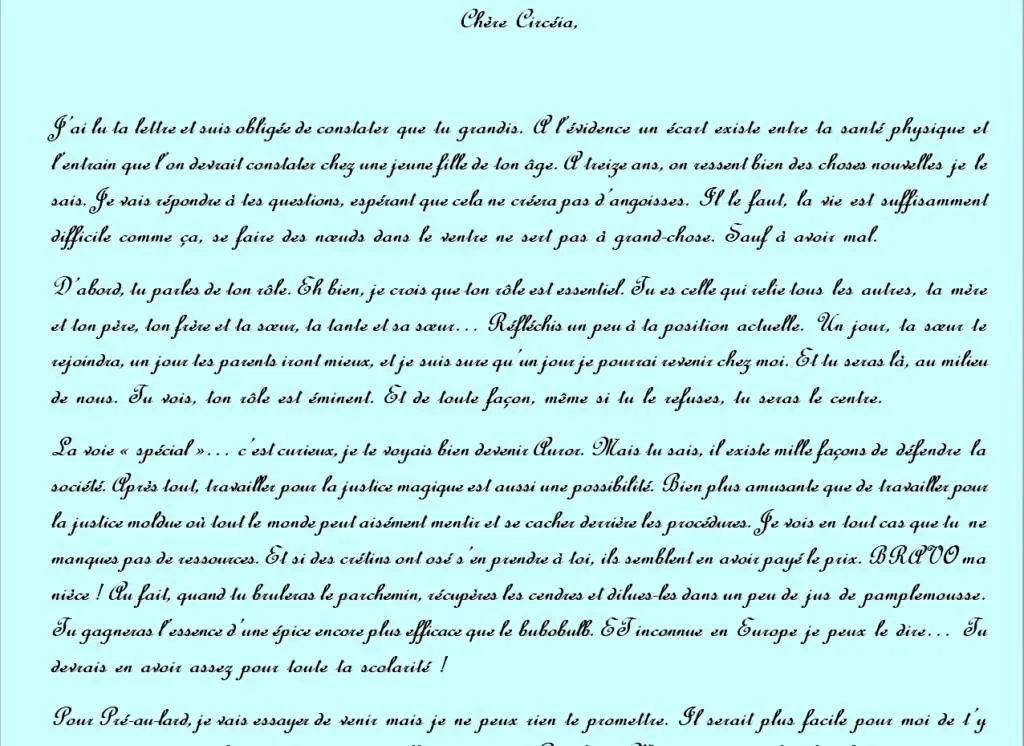 Chère Circéia,
J'ai lu ta lettre et suis obligée de constater que tu grandis. A l'évidence un écart existe entre ta santé physique et
l'entrain que l'on devrait constater chez une jeune fille de ton âge. A treize ans, on ressent bien des choses nouvelles je le
sais. Je vais répondre à tes questions, espérant que cela ne créera pas d'angoisses. Il le faut, la vie est suffisamment
difficile comme ça, se faire des nœuds dans le ventre ne sert pas à grand-chose. Sauf à avoir mal.
D'abord, tu parles de ton rôle. Eh bien, je crois que ton rôle est essentiel. Tu es celle qui relie tous les autres, ta mère
et ton père, ton frère et ta sœur, ta tante et sa sœur... Réfléchis un peu à ta position actuelle. Un jour, ta sœur te
rejoindra, un jour tes parents iront mieux, et je suis sure qu'un jour je pourrai revenir chez moi. Et tu seras là, au milieu
de nous. Tu vois, ton rôle est éminent. Et de toute façon, même si tu le refuses, tu seras le centre.
La voie « spécial »... c'est curieux, je te voyais bien devenir Auror. Mais tu sais, il existe mille façons de défendre la
société. Après tout, travailler pour la justice magique est aussi une possibilité. Bien plus amusante que de travailler pour
la justice moldue où tout le monde peut aisément mentir et se cacher derrière les procédures. Je vois en tout cas que tu ne
manques pas de ressources. Et si des crétins ont osé s'en prendre à toi, ils semblent en avoir payé le prix. BRAVO ma
nièce ! Au fait, quand tu bruleras le parchemin, récupères les cendres et dilues-les dans un peu de jus de pamplemousse.
Tu gagneras l'essence d'une épice encore plus efficace que le bubobulb. ET inconnue en Europe je peux le dire... Tu
devrais en avoir assez pour toute ta scolarité !
Pour Pré-au-lard, je vais essayer de venir mais je ne peux rien te promettre. Il serait plus facile pour moi de t'y